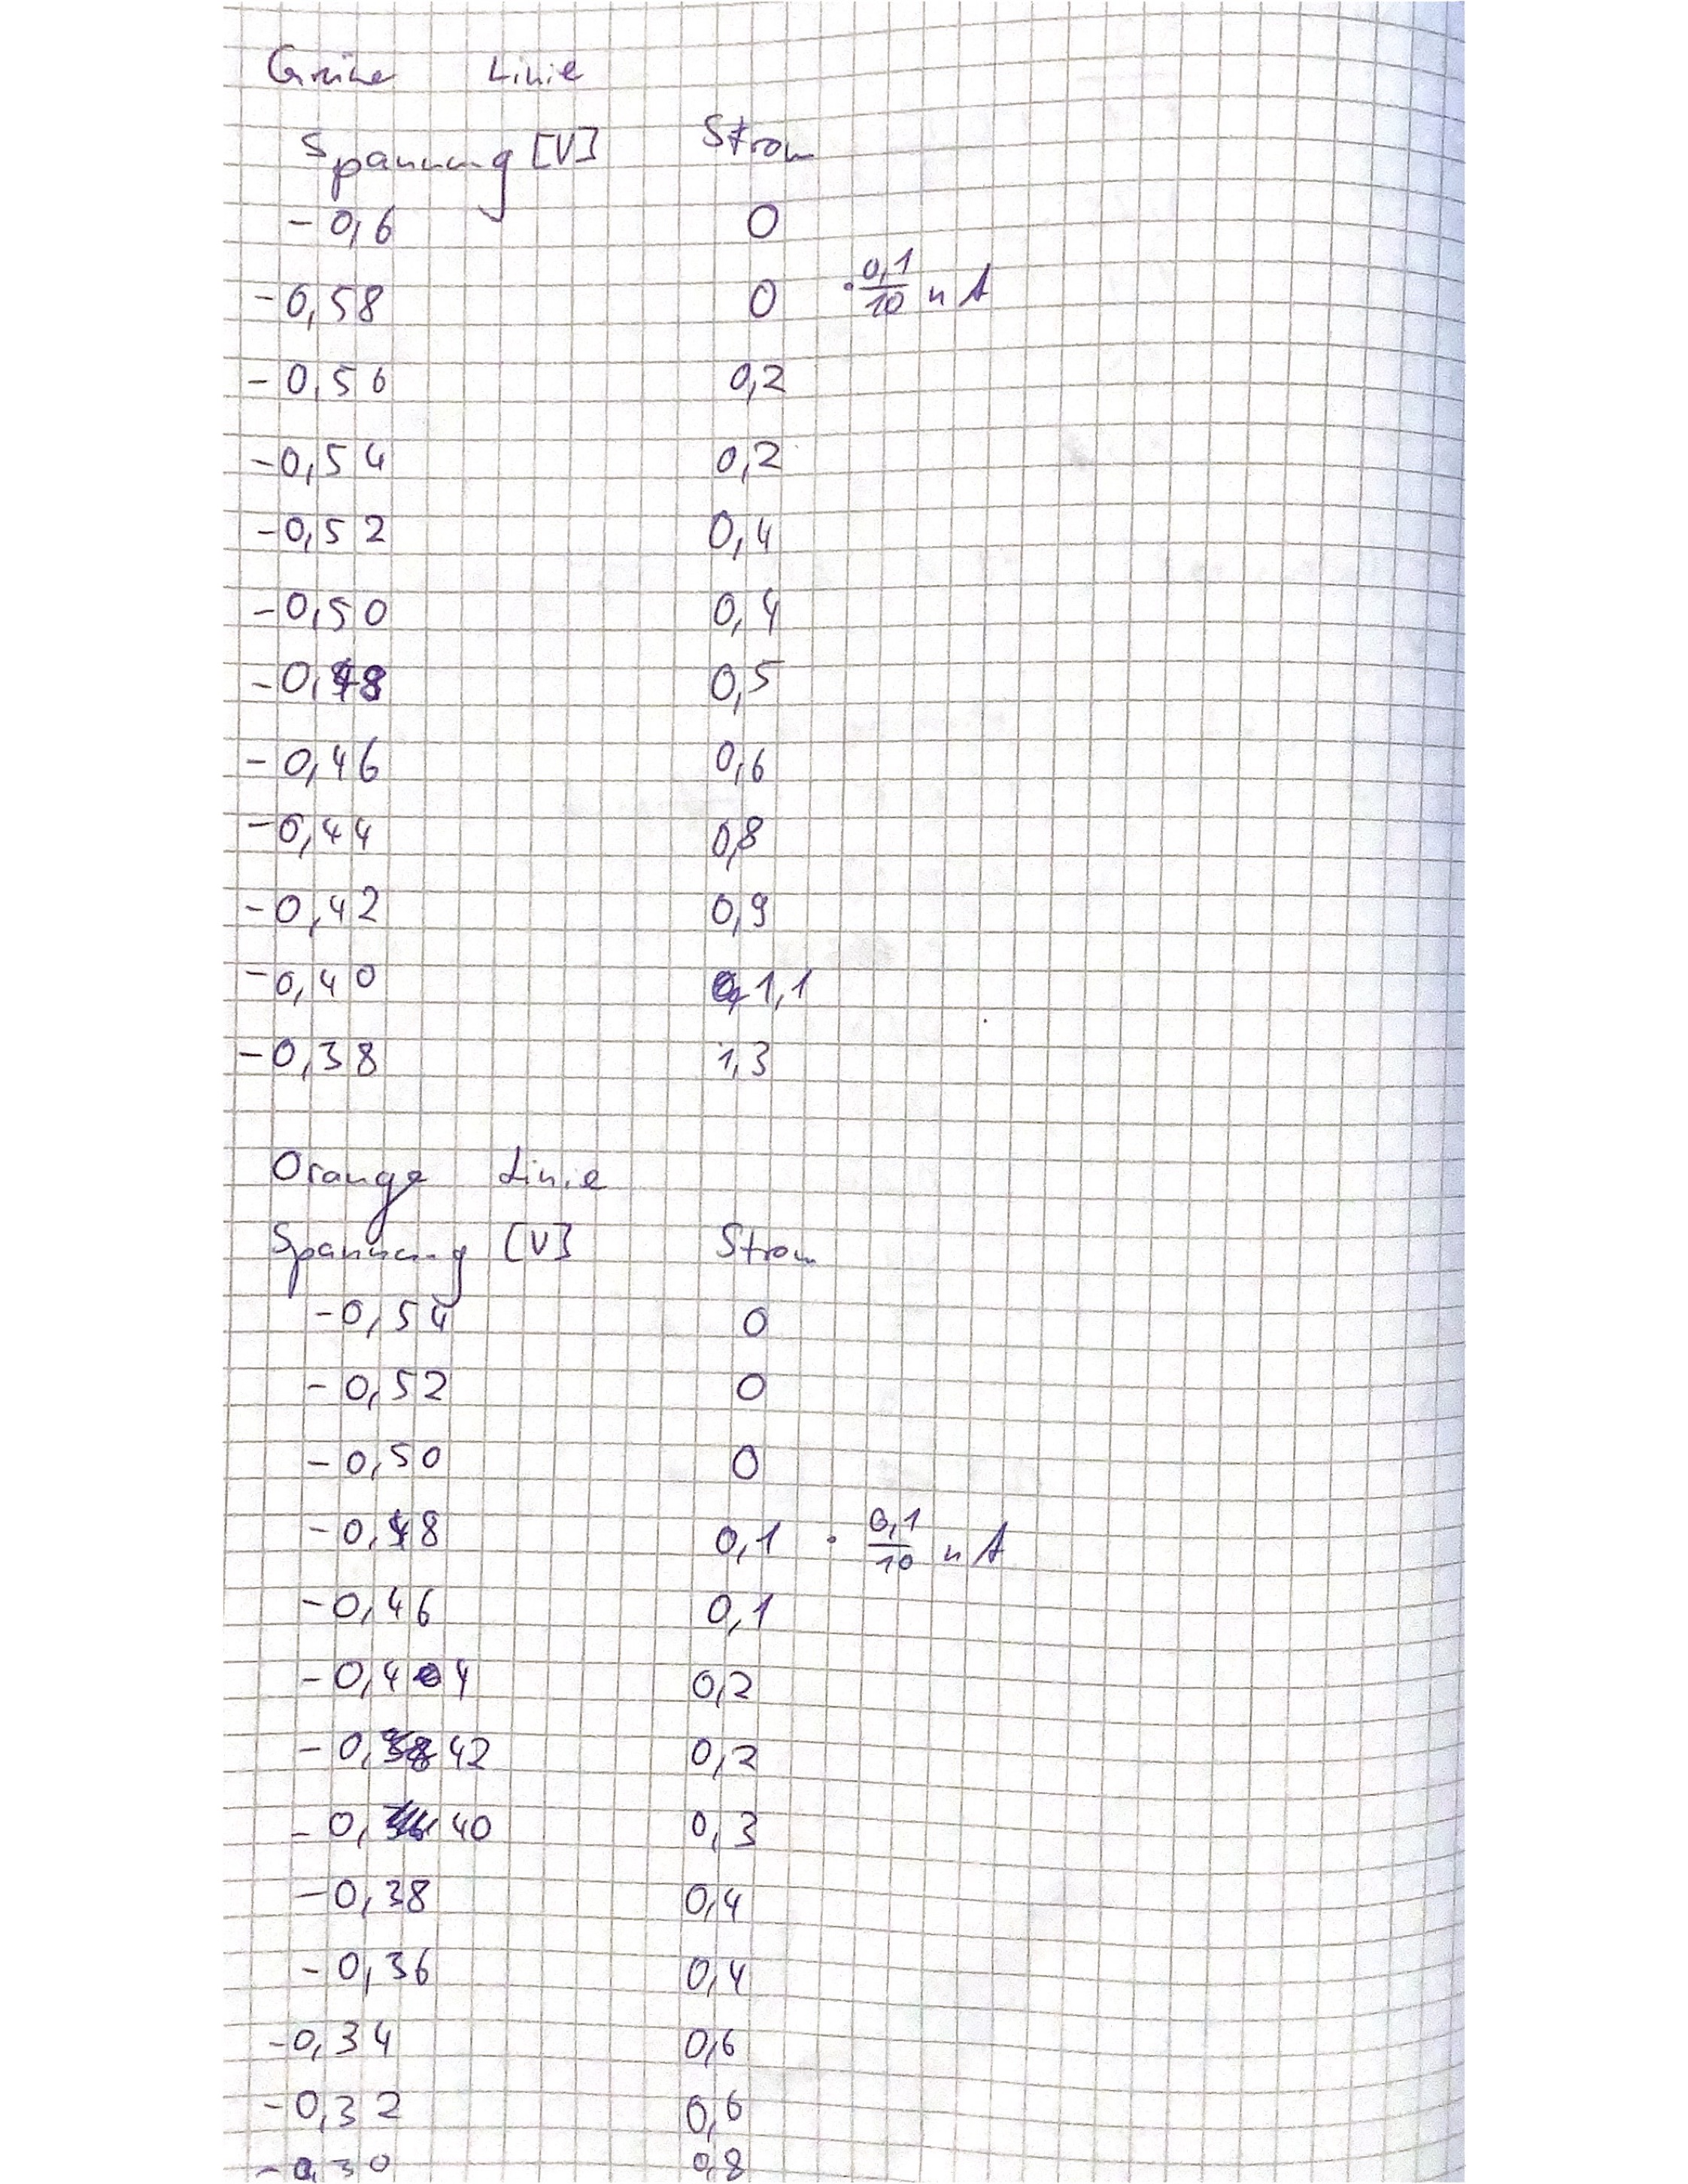 Grüne Linie
Spannung [V] Strom
-0,6 0
-0,58 0 · 0,1/10 nA
-0,56 0,2
-0,54 0,2
-0,52 0,4
-0,50 0,4
-0,48 0,5
-0,46 0,6
-0,44 0,8
-0,42 0,9
-0,40 1,1
-0,38 1,3
Orange Linie
Spannung [V] Strom
-0,54 0
-0,52 0
-0,50 0
-0,48 0,1 · 0,1/10 nA
-0,46 0,1
-0,44 0,2
-0,42 0,2
-0,40 0,3
-0,38 0,4
-0,36 0,4
-0,34 0,6
-0,32 0,6
-0,30 0,8